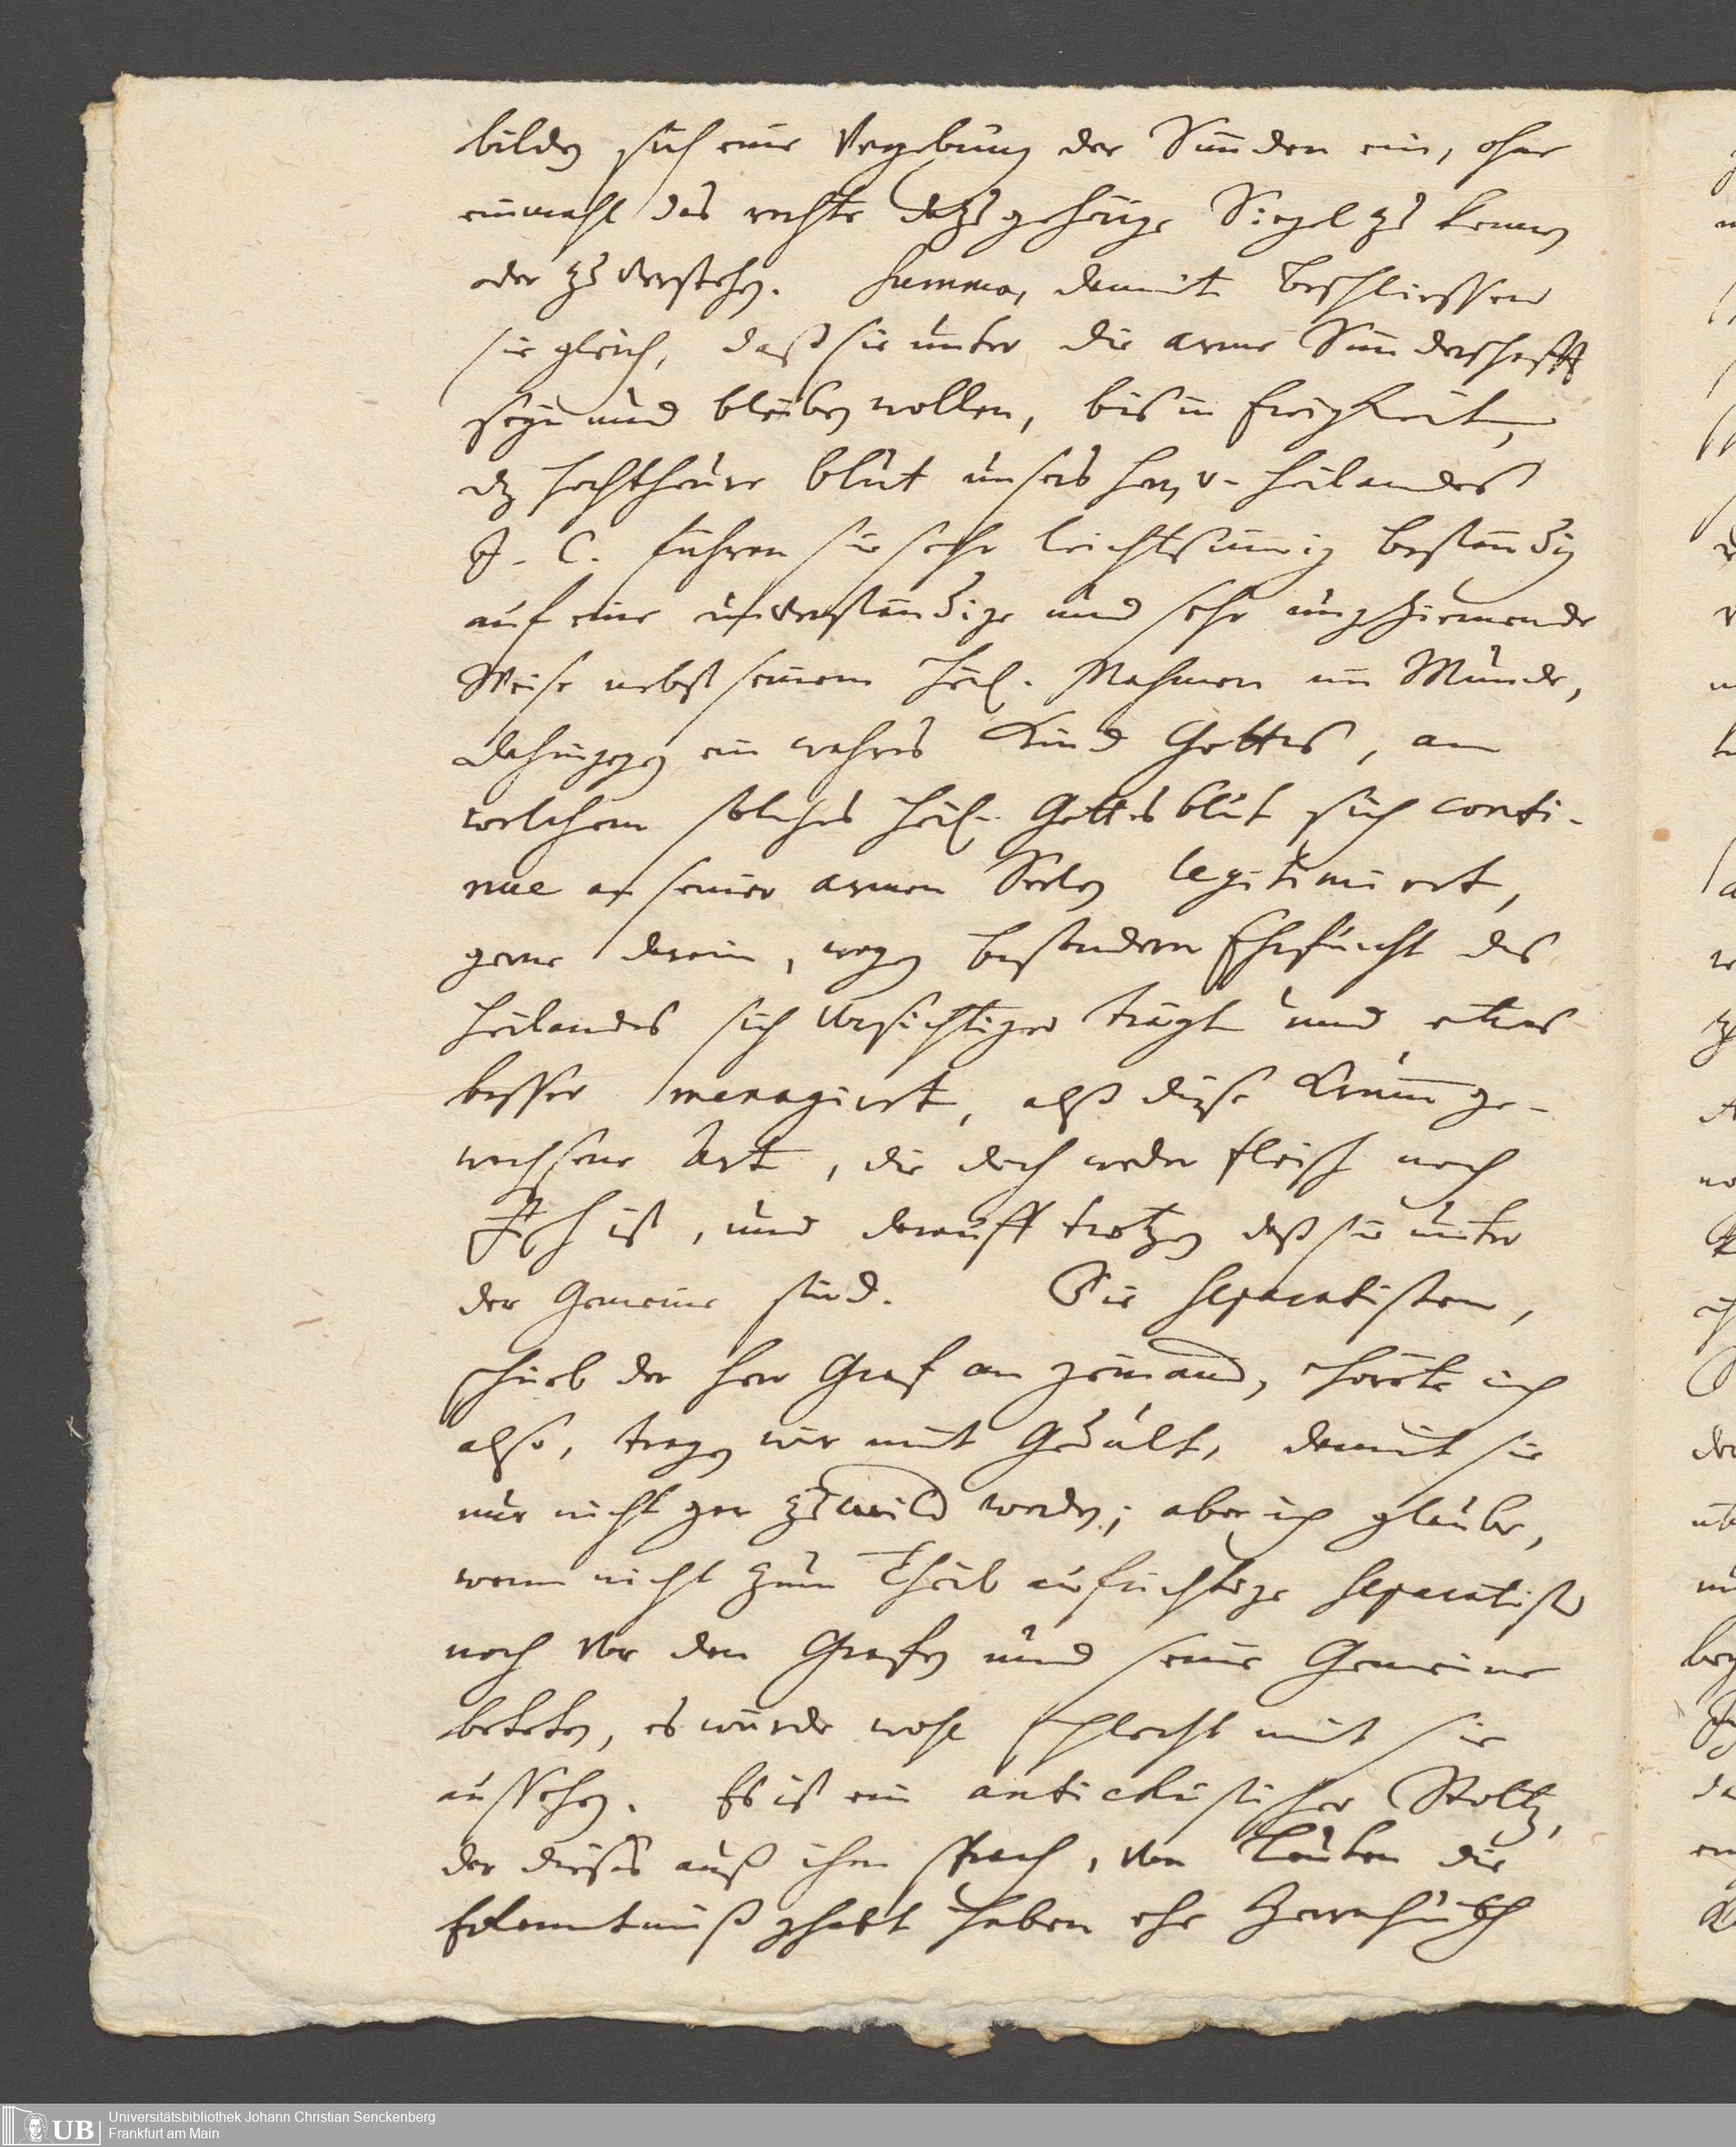 bilden sich eine Vergebung der Sünden ein, ohne
einmahl das rechte dazu gehörige Siegel zu kennen
oder zu verstehen. Summa, damit beschliessen
sie gleich, daß sie unter die arme Sünderschafft
seyn und bleiben wollen, bis in Ewigkeit,
dz hochtheure blut unsers Herrn u. Heilandes
J. C. führen sie sehr leichtsinnig beständig
auf eine unverständige und sehr ungeziemende
Weise nebst seinem heil. Nahmen im Munde,
dahingegen ein wahres Kind Gottes, an
welchem solches heil. Gottes blut sich conti-
nue an seiner armen Seelen legitimiert,
gerne darein, wegen besondern Ehrfurcht des
Heilandes sich vorsichtiger trägt und etwas
besser menagiert, alß diese Krumm ge-
wachsene Art, die doch weder fleisch noch
Fisch ist, und darauff trotzen daß sie unter
der Gemeine sind. Die Separatisten,
schrieb der Herr Graf an jemand, hörte ich
also, tragen wir mit Gedult, damit sie
nur nicht gar zu wild werden; aber ich glaube,
wenn nicht zum Theil aufrichtige Separatisten
noch vor den Grafen und seine Gemeine
beteten, es würde wohl schlecht mit sie
aussehen. Es ist ein antichristischer Stoltz,
der dieses auß ihm sprach, von Leuten die
Erkenntniß gehabt haben ehe Herrnhuth